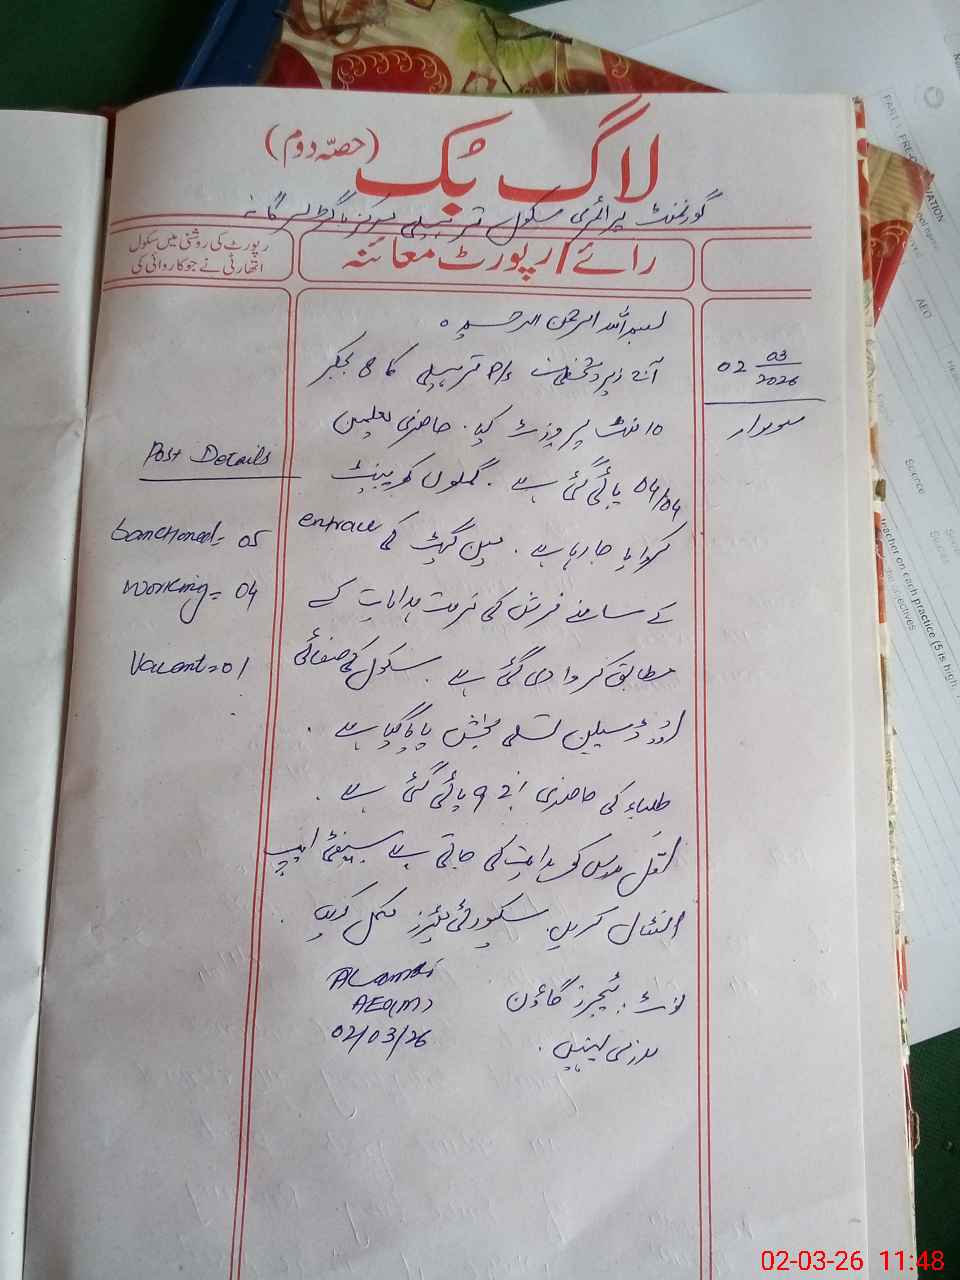 لاگ بک (حصہ دوم)
گورنمنٹ پرائمری سکول
رائے / رپورٹ معائنہ
رپورٹ کی روشنی میں سکول
اتھارٹی نے جو کاروائی کی
02 03/2026
سوموار
بسم اللہ الرحمن الرحیم
آج زیر دستخطی نے P/S کا 8 بجکر
10 منٹ پر وزٹ کیا۔ حاضری معلمین
04/04 پائی گئی ہے۔ گملوں کو پینٹ
کروایا جا رہا ہے۔ مین گیٹ کی entrace
کے سامنے فرش کی مرمت ہدایات کے
مطابق کروا دی گئی ہے۔ سکول کی صفائی
اور ڈسپلن تسلی بخش پایا گیا ہے۔
طلباء کی حاضری پائی گئی ہے۔
مدرس کو ہدایت کی جاتی ہے سیفٹی ایپ
انسٹال کریں۔ سکیورٹی مکمل کریں۔
نوٹ۔ ٹیچرز گاؤن
لازمی پہنیں۔
AEO(M)
02/03/26
Post Details
Sanctioned = 05
Working = 04
Vacant = 01
PART I PRE-
AEO
Science
teacher on each practice (5 is high,
02-03-26 11:48